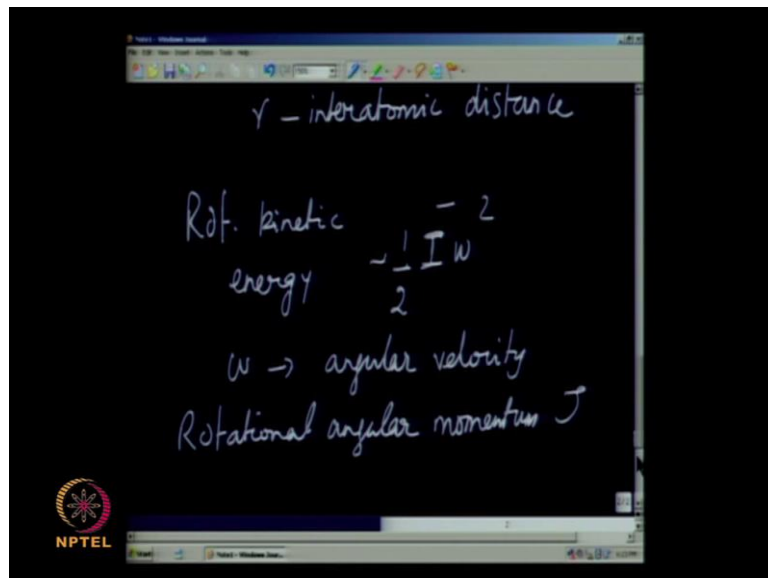 Note1 - Windows Journal
File Edit View Insert Actions Tools Help
r - interatomic distance
Rot. kinetic
energy - 1/2 I ω²
ω → angular velocity
Rotational angular momentum J
2/2
2
NPTEL
Start
Note1 - Windows Jour...